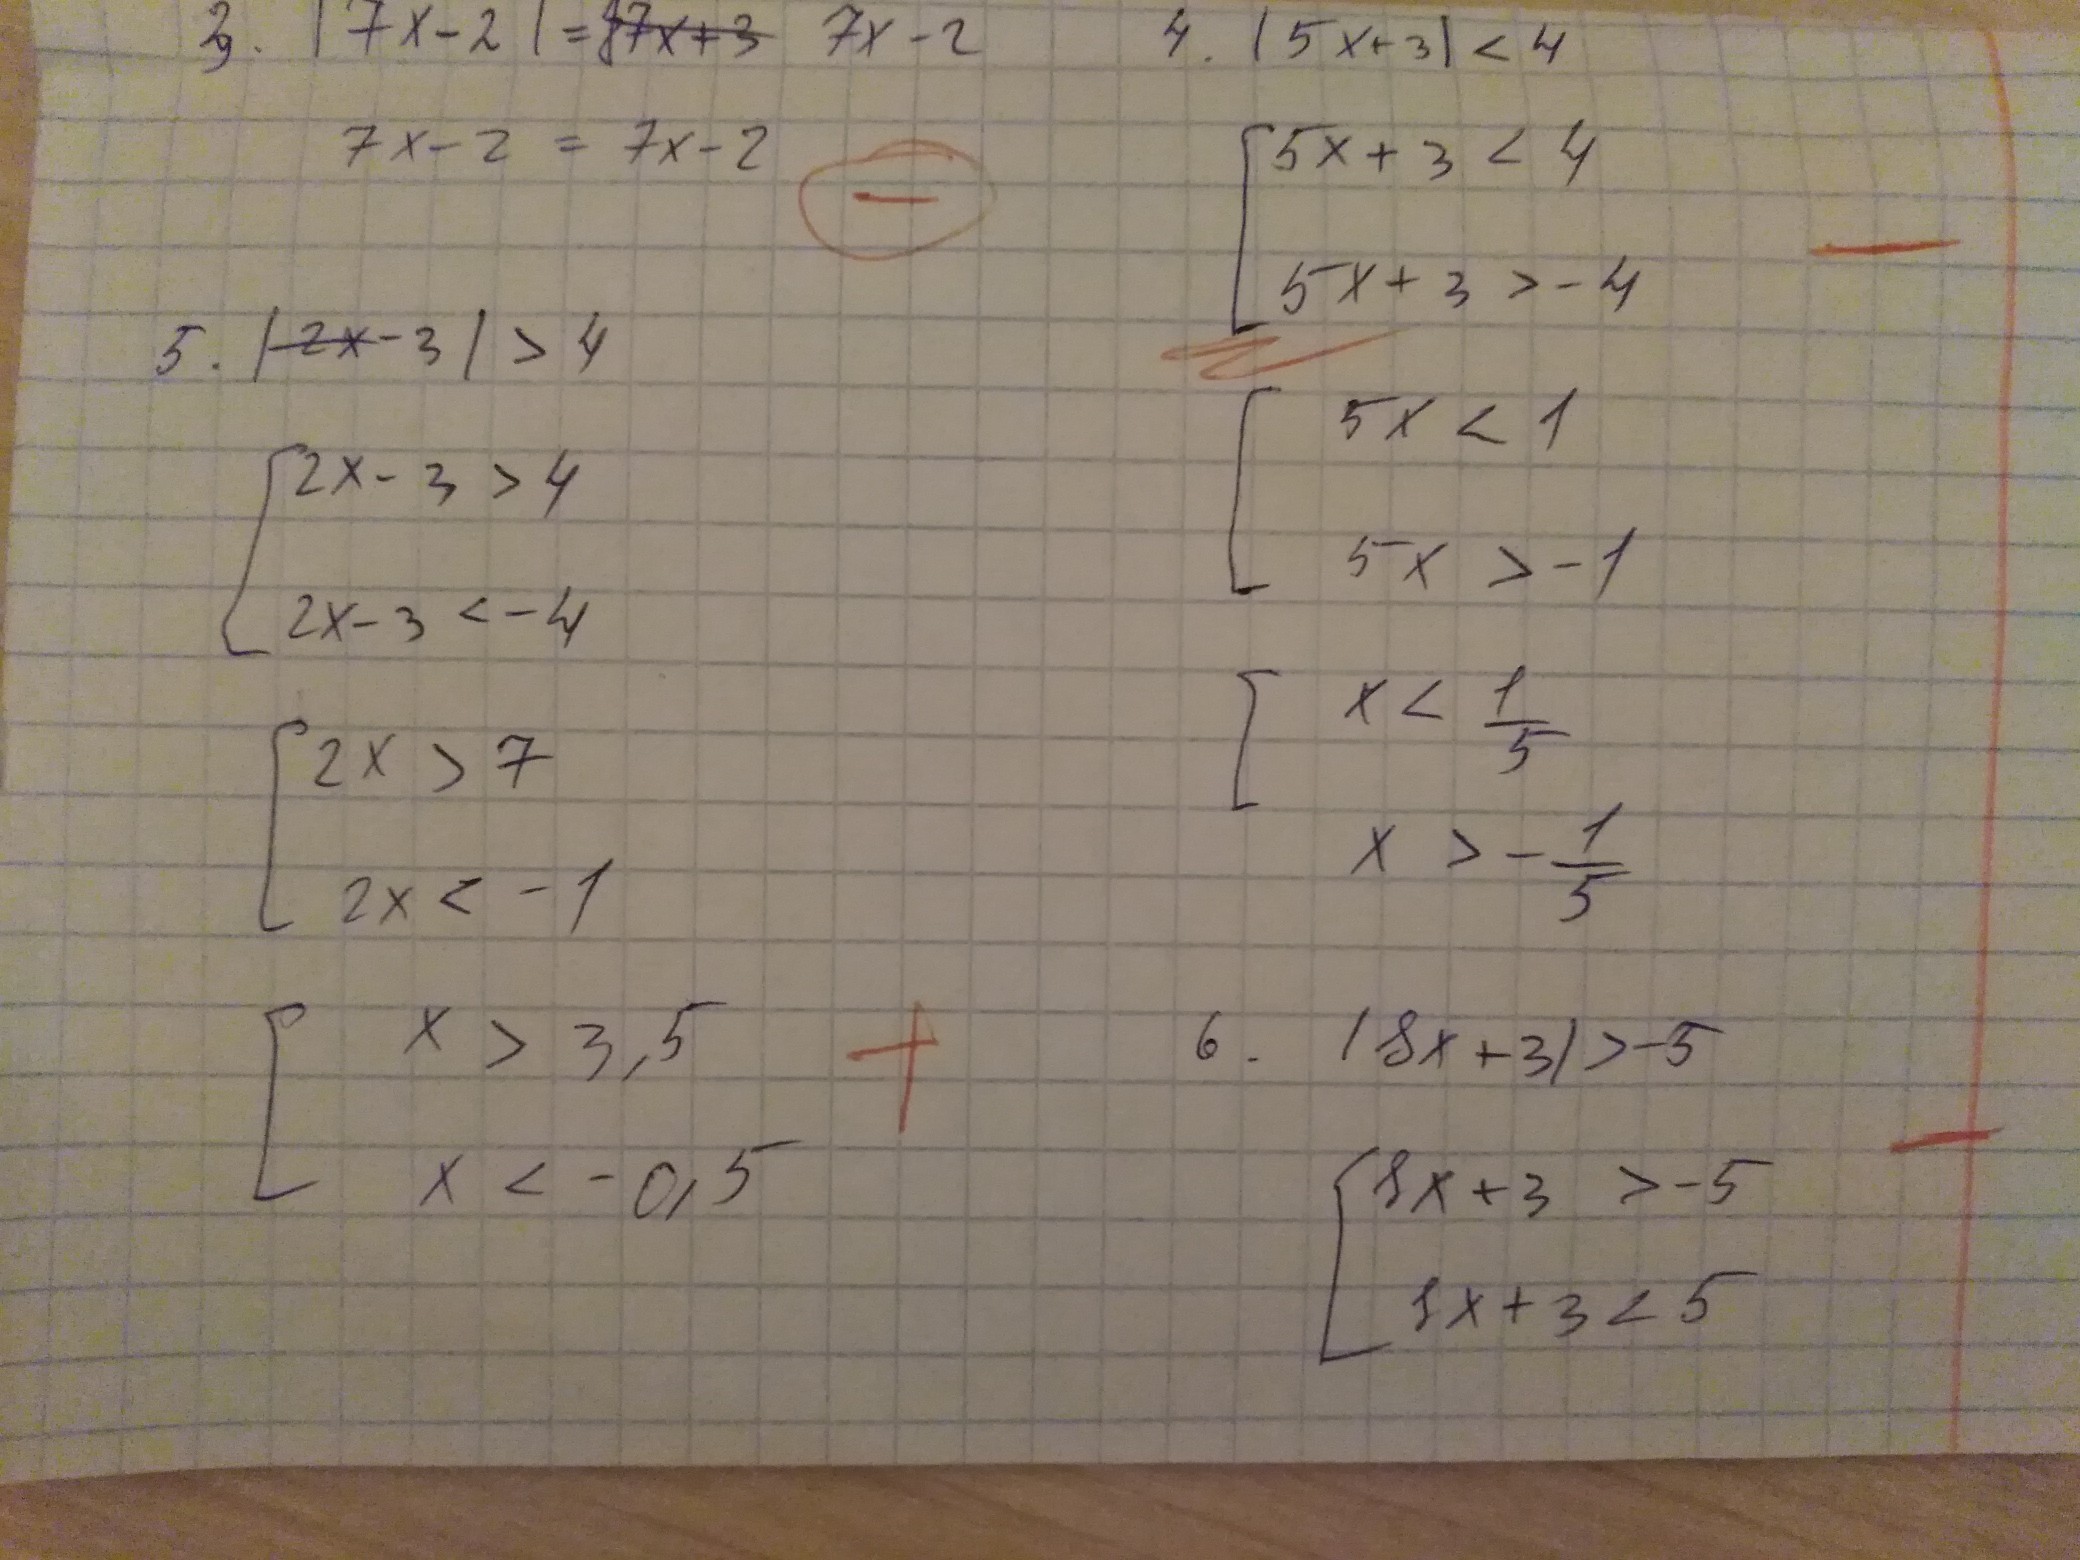 3. |7x-2| = 7x+3 7x-2
7x-2 = 7x-2
−
5. |2x-3| > 4
2x-3 > 4
2x-3 < -4
2x > 7
2x < -1
x > 3,5
x < -0,5
+
4. |5x+3| < 4
5x+3 < 4
5x+3 > -4
−
5x < 1
5x > -1
x < 1/5
x > -1/5
6. |8x+3| > -5
−
8x+3 > -5
8x+3 < 5